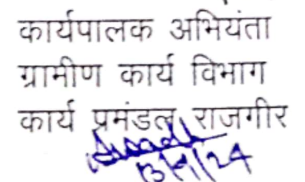 कार्यपालक अभियंता
ग्रामीण कार्य विभाग
कार्य प्रमंडल, राजगीर